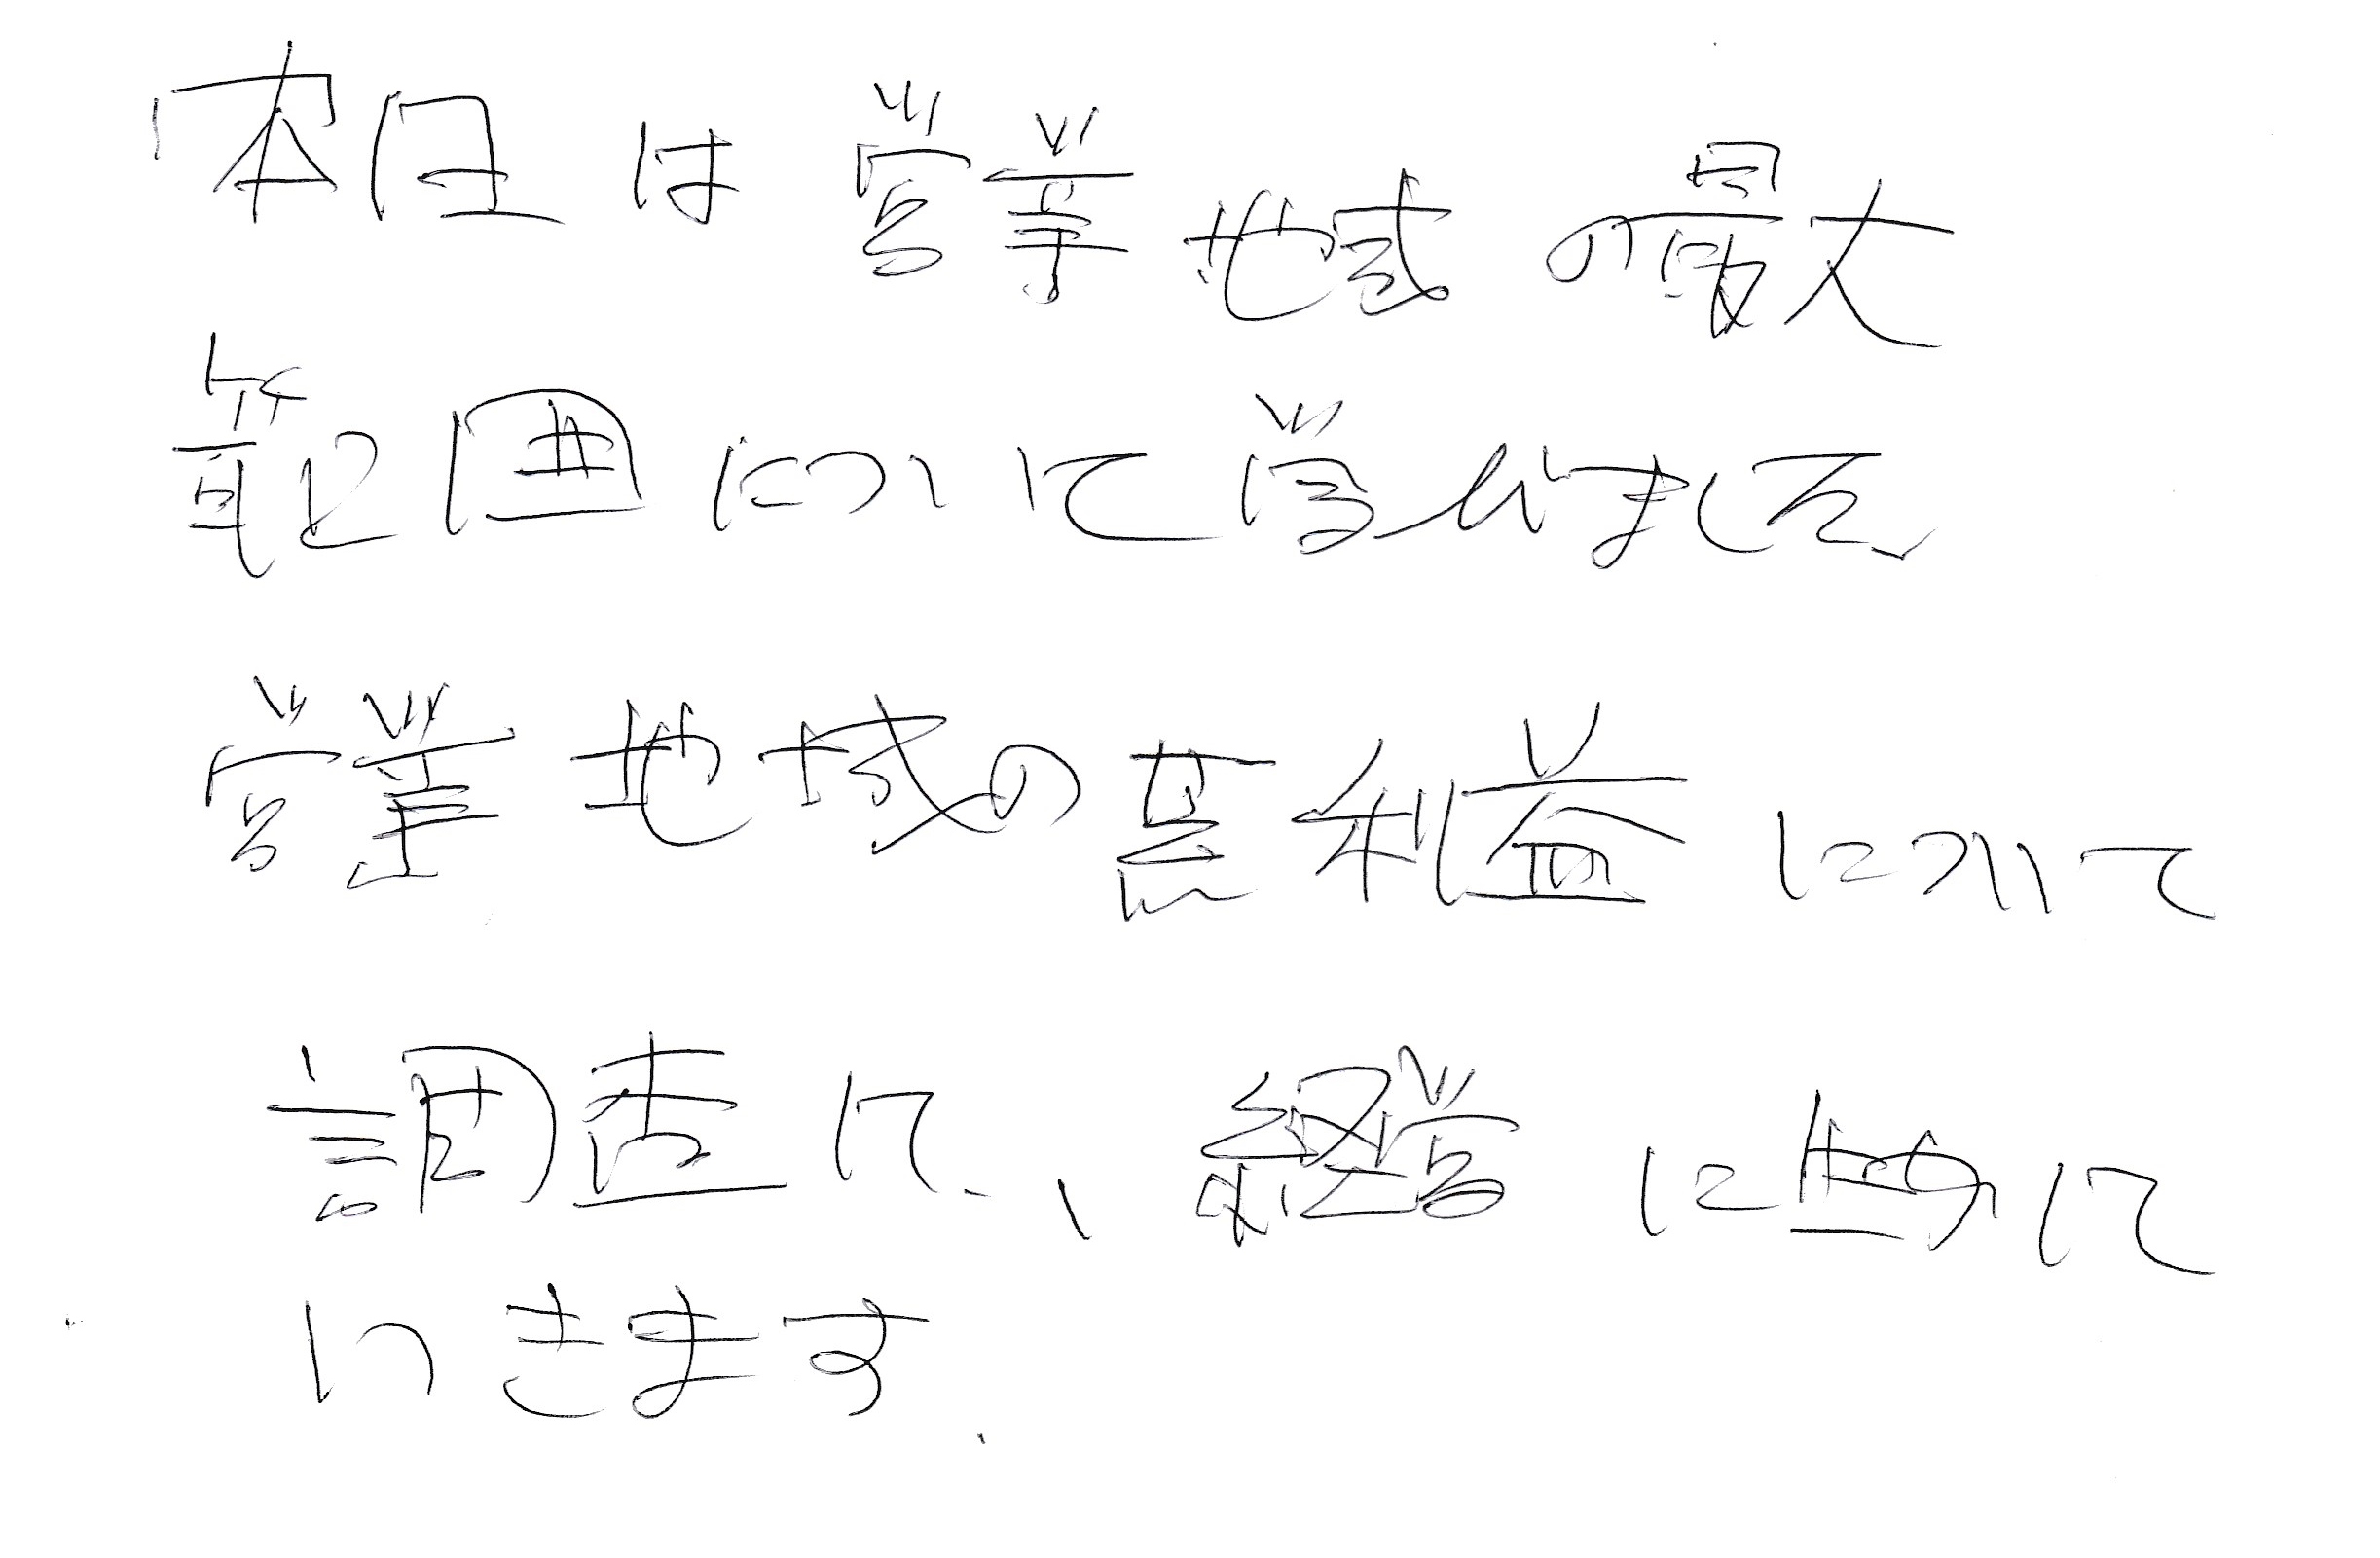 本日は営業地域の最大
範囲について学びました
営業地域の真利益について
調査に、経営に生かして
いきます.